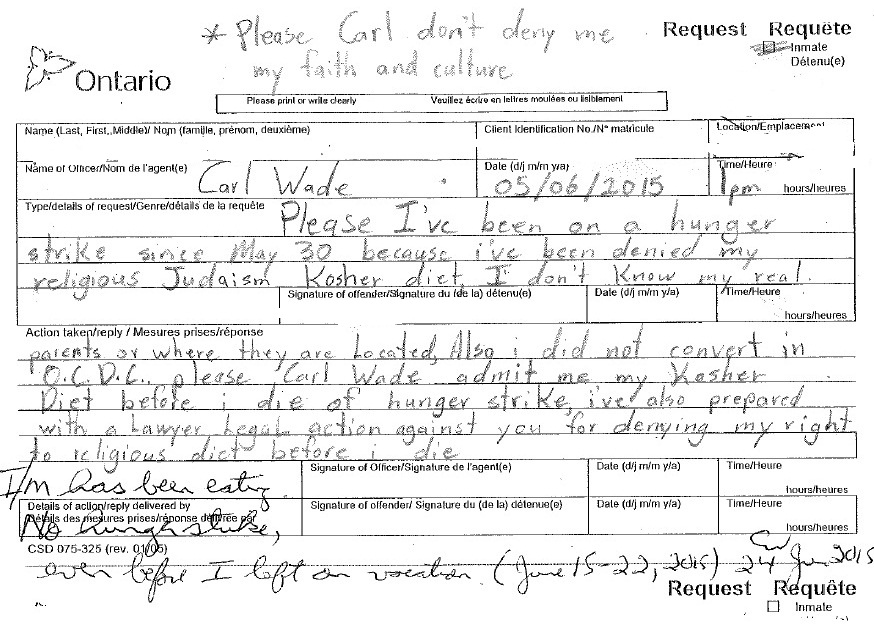 * Please Carl don't deny me
my faith and culture
Request Requête
Inmate
Détenu(e)
Ontario
Please print or write clearly Veuillez écrire en lettres moulées ou lisiblement
Name (Last, First, Middle)/ Nom (famille, prénom, deuxième) Client Identification No./N° matricule Location/Emplacement
Name of Officer/Nom de l'agent(e) Carl Wade Date (d/j m/m y/a) 05/06/2015 Time/Heure 1pm hours/heures
Type/details of request/Genre/détails de la requête Please I've been on a hunger
strike since May 30 because i've been denied my
religious Judaism Kosher diet, I don't know my real
Signature of offender/Signature du (de la) détenu(e) Date (d/j m/m y/a) Time/Heure
hours/heures
Action taken/reply / Mesures prises/réponse
parents or where they are located, Also i did not convert in
O.C.D.C.. please Carl Wade admit me my Kosher
Diet before i die of hunger strike, i've also prepared
with a Lawyer Legal action against you for denying my right
to religious diet before i die
I/m has been eating. Signature of Officer/Signature de l'agent(e) Date (d/j m/m y/a) Time/Heure
hours/heures
Details of action/reply delivered by Signature of offender/ Signature du (de la) détenue(e) Date (d/j m/m y/a) Time/Heure
Détails des mesures prises/réponse délivrée par hours/heures
No hungh strike,
CSD 075-325 (rev. 01/05)
even before I left on vacation. (June 15-22, 2015) 24 Jun 2015
Request Requête
Inmate